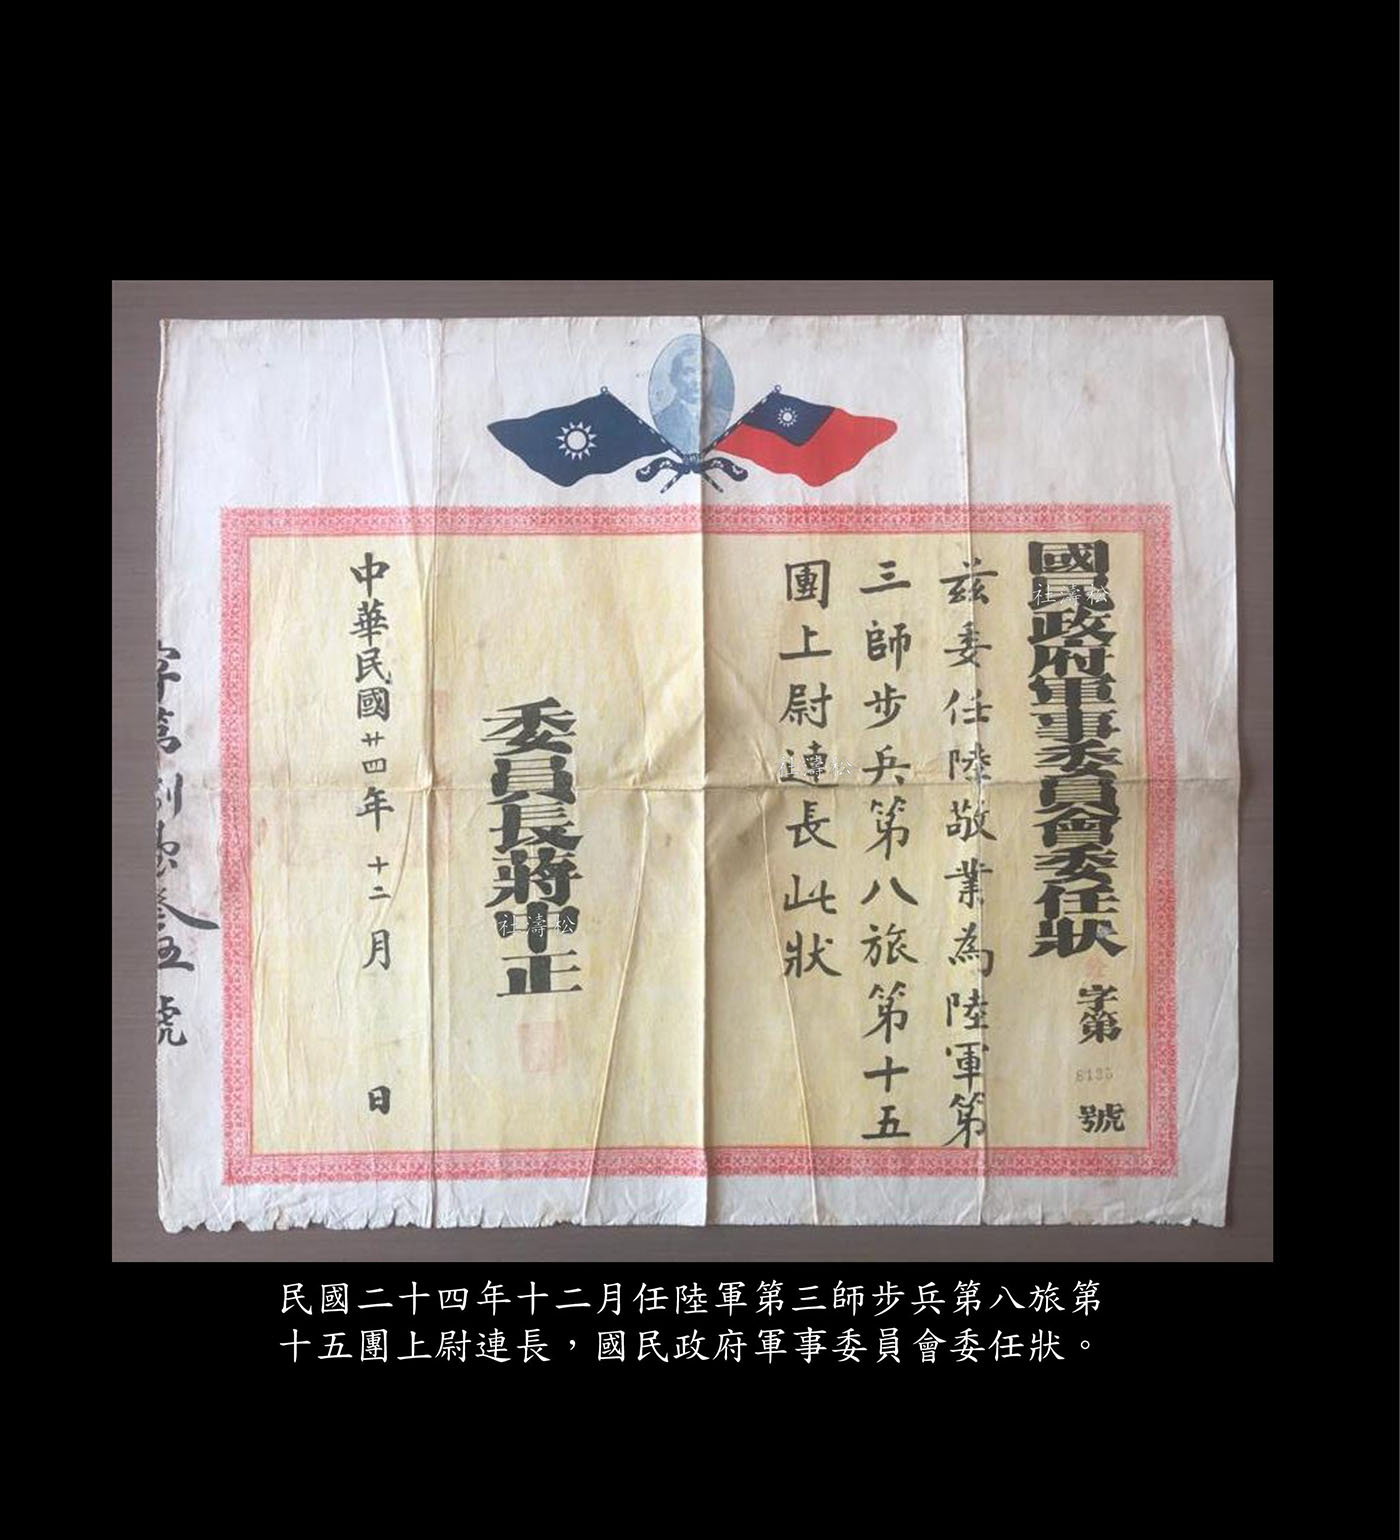 國民政府軍事委員會委任狀
字第 8135 號
茲委任陸敬業為陸軍第
三師步兵第八旅第十五
團上尉連長此狀
委員長蔣中正
中華民國廿四年十二月 日
字第捌 叁伍號
松濤社
松濤社
松濤社
民國二十四年十二月任陸軍第三師步兵第八旅第
十五團上尉連長，國民政府軍事委員會委任狀。